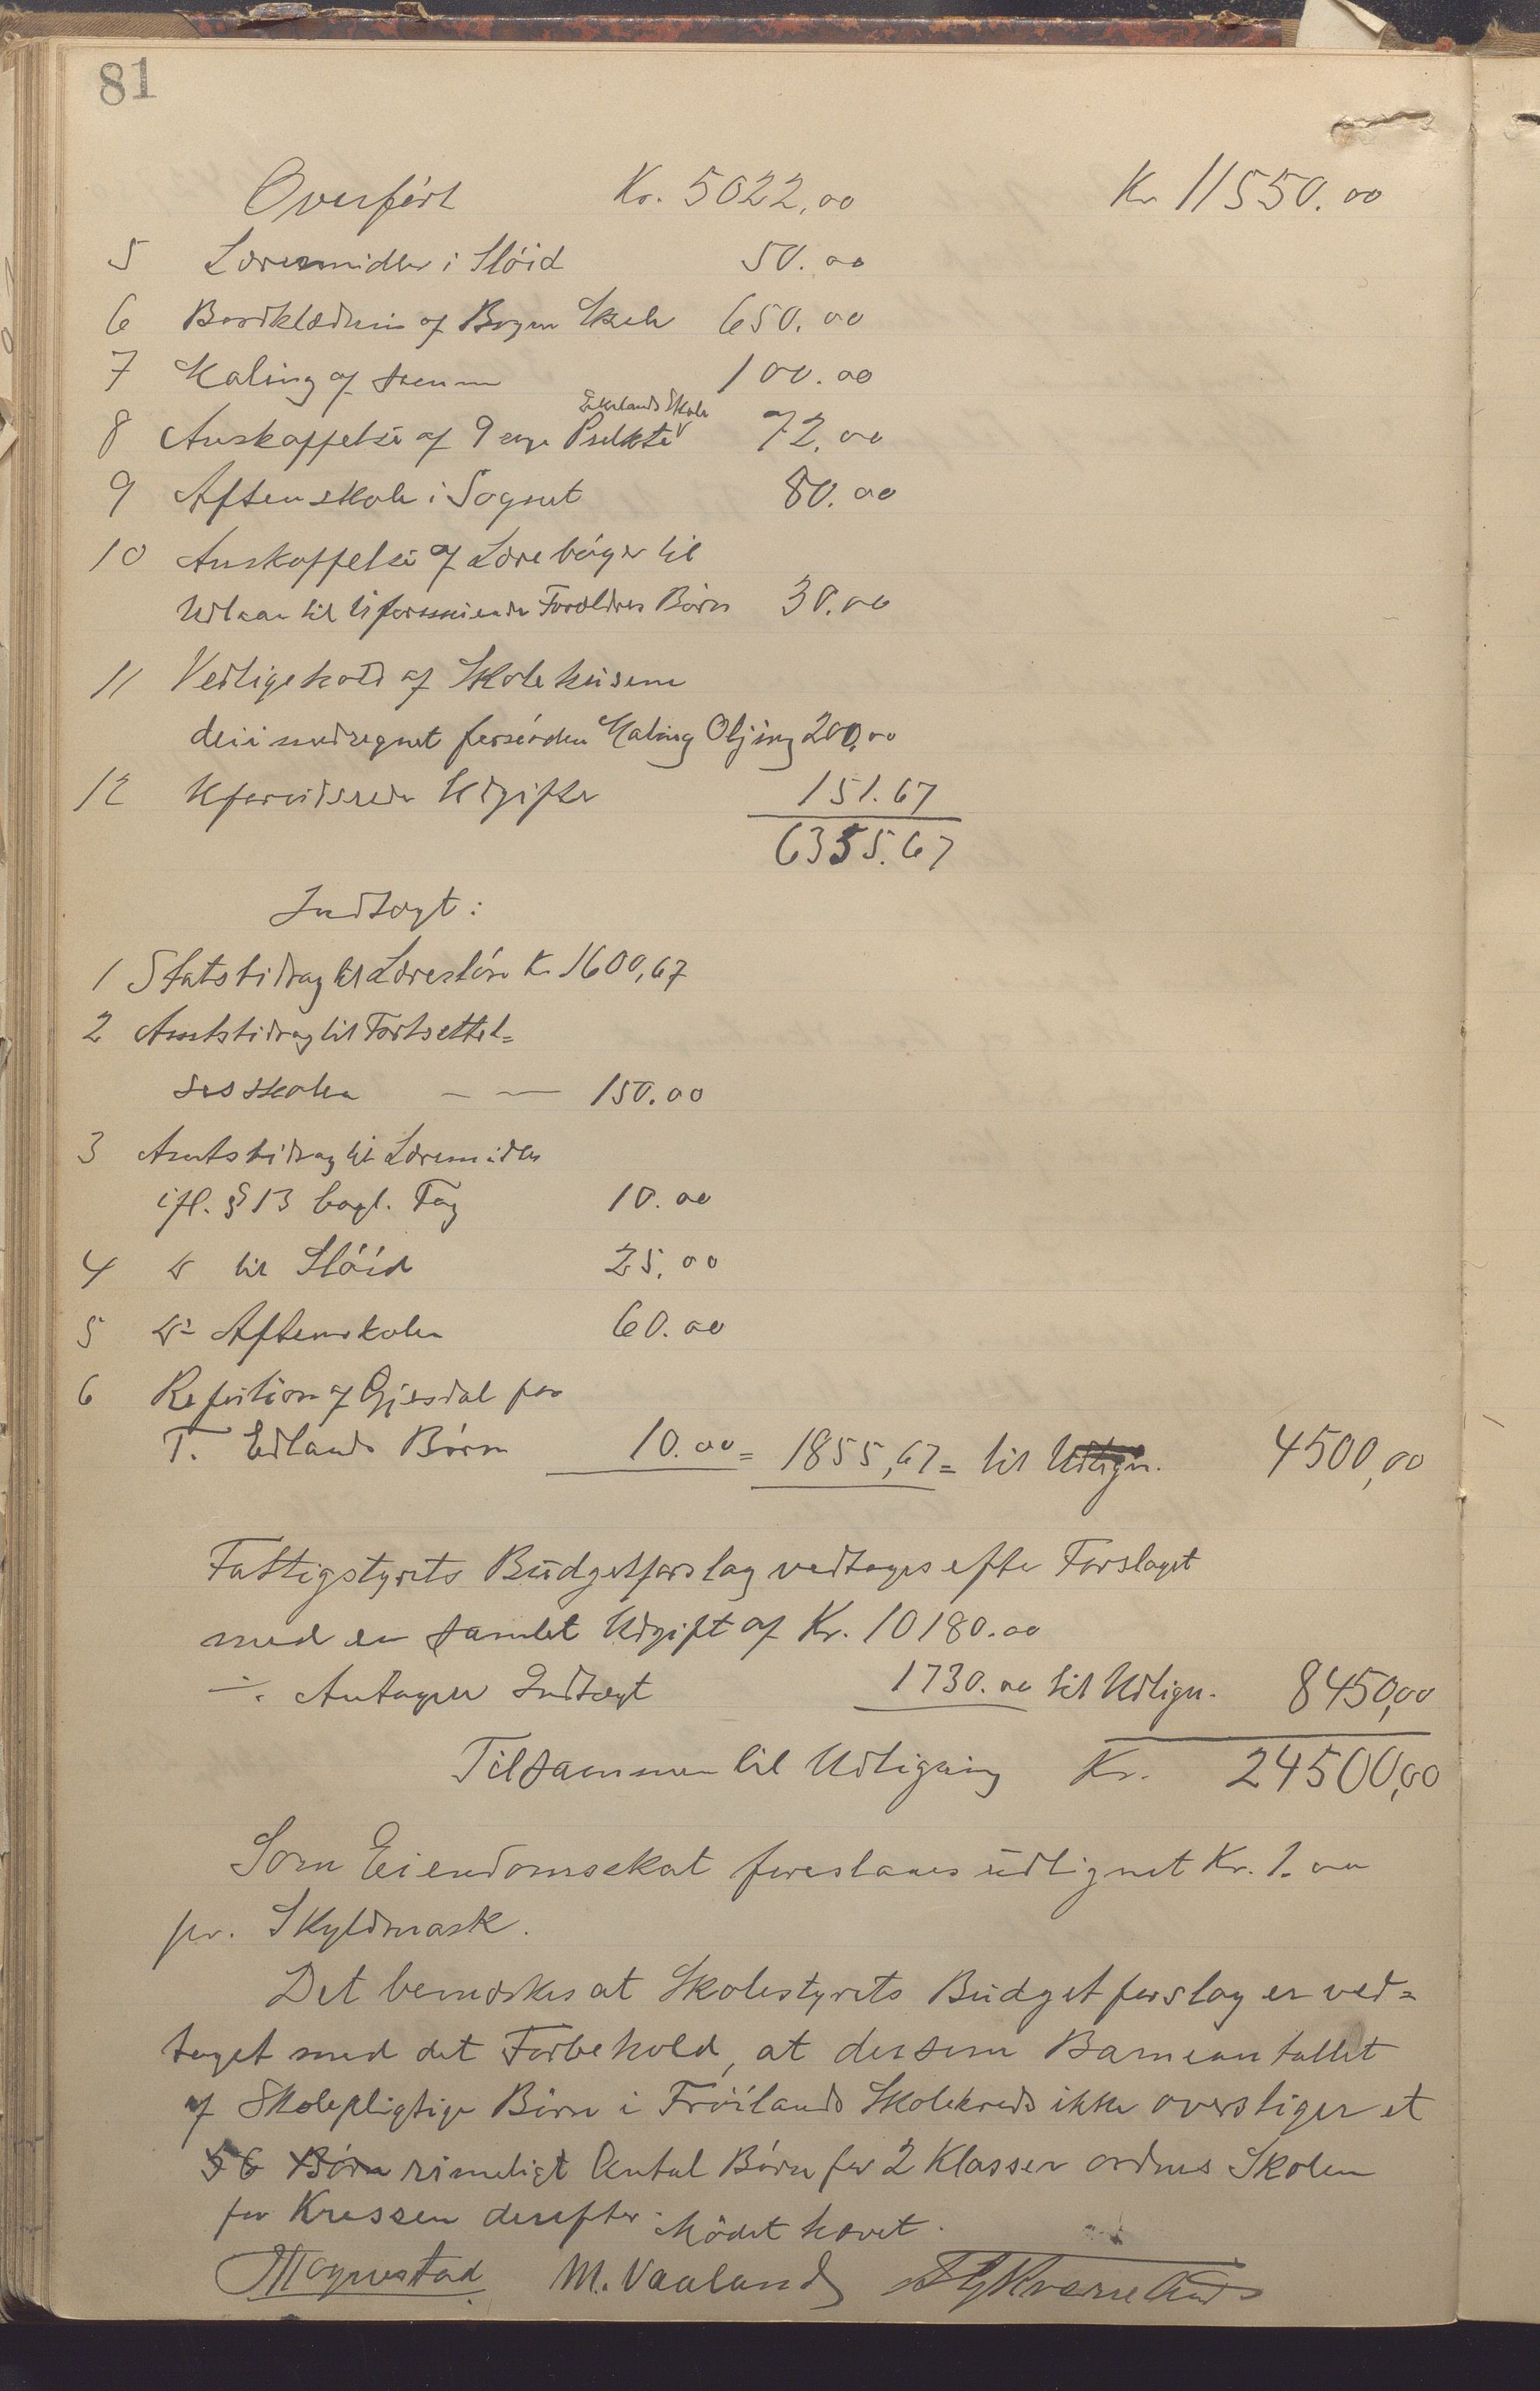 81
Overført Kr. 5022,00 Kr 11550.00
5 Læremidler i Sløid 50.00
6 Bordklædning af Bogen Skole 650.00
7 Maling af samme 100.00
8 Anskaffelse af 9 nye Pulkte Ekelands Skole 72.00
9 Aftenskole i Sognet 80.00
10 Anskaffelse af Lærebøger til
Udlaan til Uformuende Forældres Børn 30.00
11 Vedligehold af Skolehusene
deri medregnet fornøden Maling Oljing 200.00
12 Uforudseede Udgifter 151.67
6355.67
Indtægt:
1 Statsbidrag til Lærerløn Kr 1600,67
2 Amtsbidrag til Fortsettel=
sesskolen — — 150.00
3 Amtsbidrag til Læremidler
ifl. § 13 bogl. Fag 10.00
4 Do til Sløid 25.00
5 Do Aftenskolen 60.00
6 Refusion af Gjesdal for
T. Edlands Børn 10.00 = 1855,67 = til Udlign. 4500,00
Fattigstyrets Budgetforslag vedtages efter Forslaget
med en samlet Udgift af Kr. 10180.00
÷ Antagen Indtægt 1730.00 til Udlign. 8450,00
Tilsammen til Udligning Kr. 24500,00
Som Eiendomsskat foreslaaes üdlignet Kr. 1.00
pr. Skyldmark.
Det bemærkes at Skolestyrets Budgetforslag er ved=
taget med det Forbehold, at dersom Barneantallet
af Skolepligtige Børn i Frøilands Skolekreds ikke overstiger et
56 Børn rimeligt Antal Børn for 2 Klasser ordnes Skolen
for Kredsen derefter. Mødet hævet.
Mognestad M. Vaaland